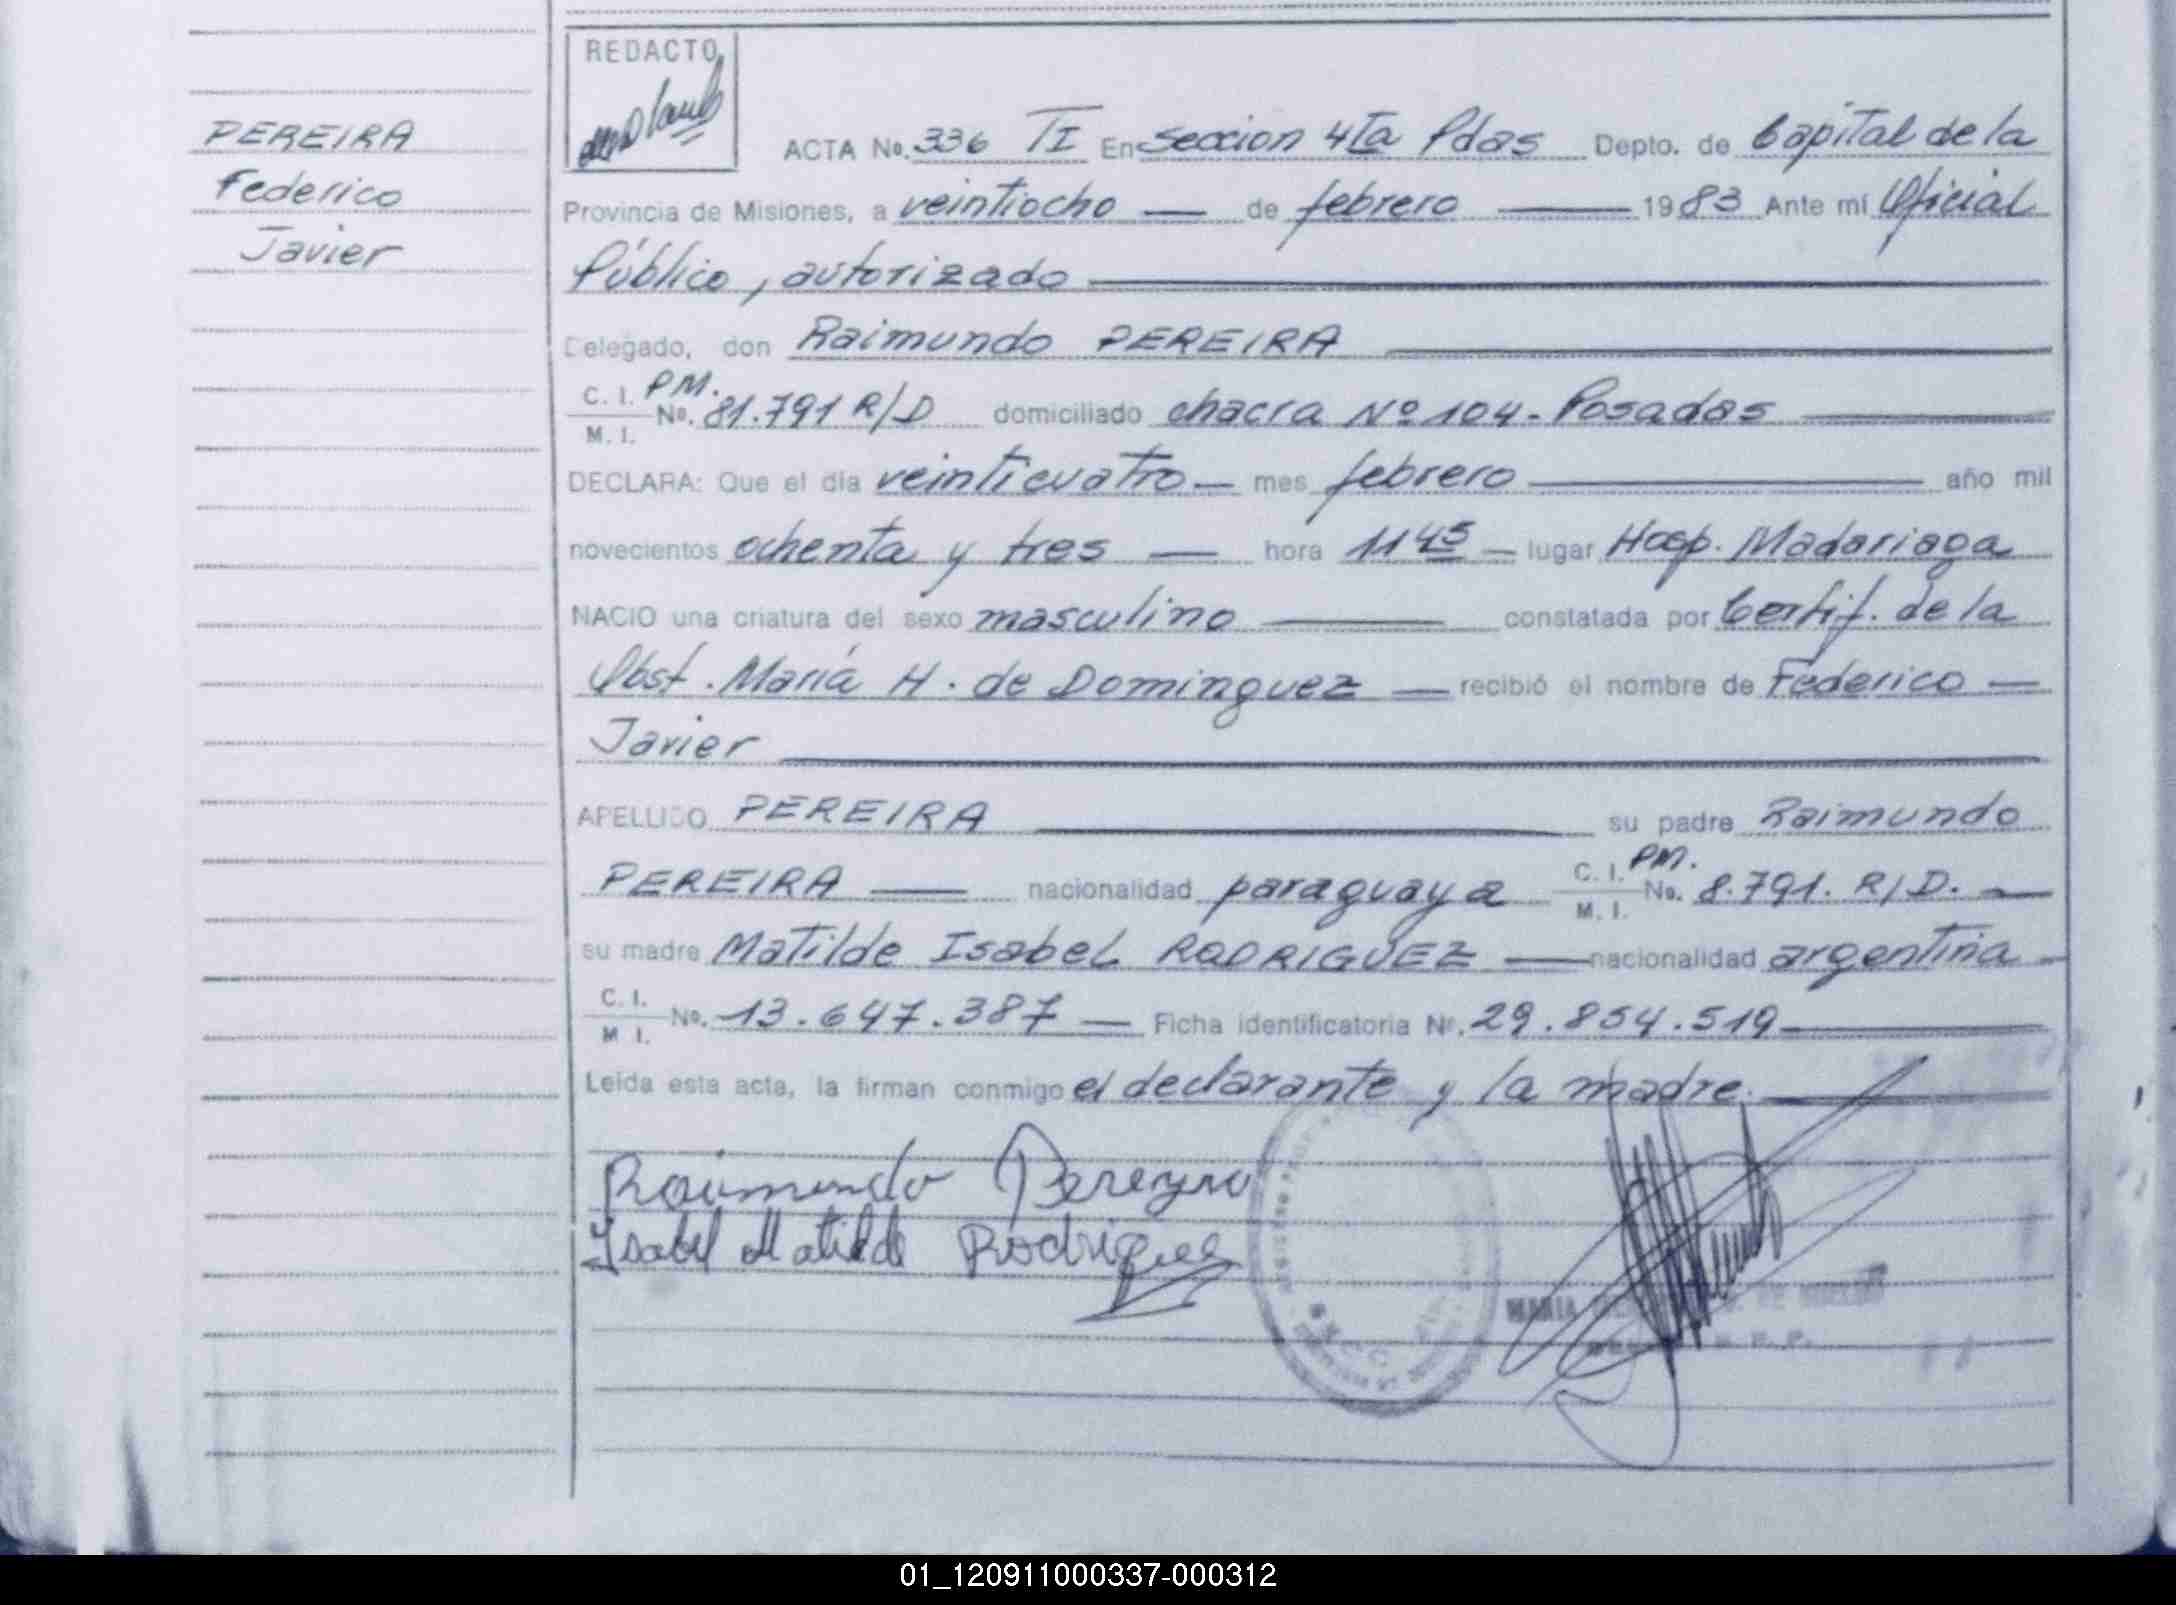 PEREIRA
Federico
Javier
REDACTO
ACTA No. 336 TI En Seccion 4Ta Pdas Depto. de Capital de la
Provincia de Misiones, a veintiocho — de febrero — 1983 Ante mí Oficial
Público, autorizado
Delegado, don Raimundo PEREIRA
C. I. PM.
M. I. No. 81.791 R/D domiciliado chacra Nº 104 - Posadas
DECLARA: Que el día veinticuatro — mes febrero — año mil
novecientos ochenta y tres — hora 11 45 — lugar Hosp. Madariaga
NACIO una criatura del sexo masculino — constatada por Certif. de la
Obst. María H. de Dominguez — recibió el nombre de Federico —
Javier
APELLIDO PEREIRA su padre Raimundo
PEREIRA — nacionalidad paraguaya C. I. PM. M. I. No. 8.791. R/D. —
su madre Matilde Isabel RODRIGUEZ — nacionalidad argentina —
C. I. M. I. No. 13.647.387 — Ficha identificatoria Nº. 29.854.519
Leída esta acta, la firman conmigo el declarante y la madre.
Raimundo Pereyra
Isabel Matilde Rodriguez
MARIA
01_120911000337-000312